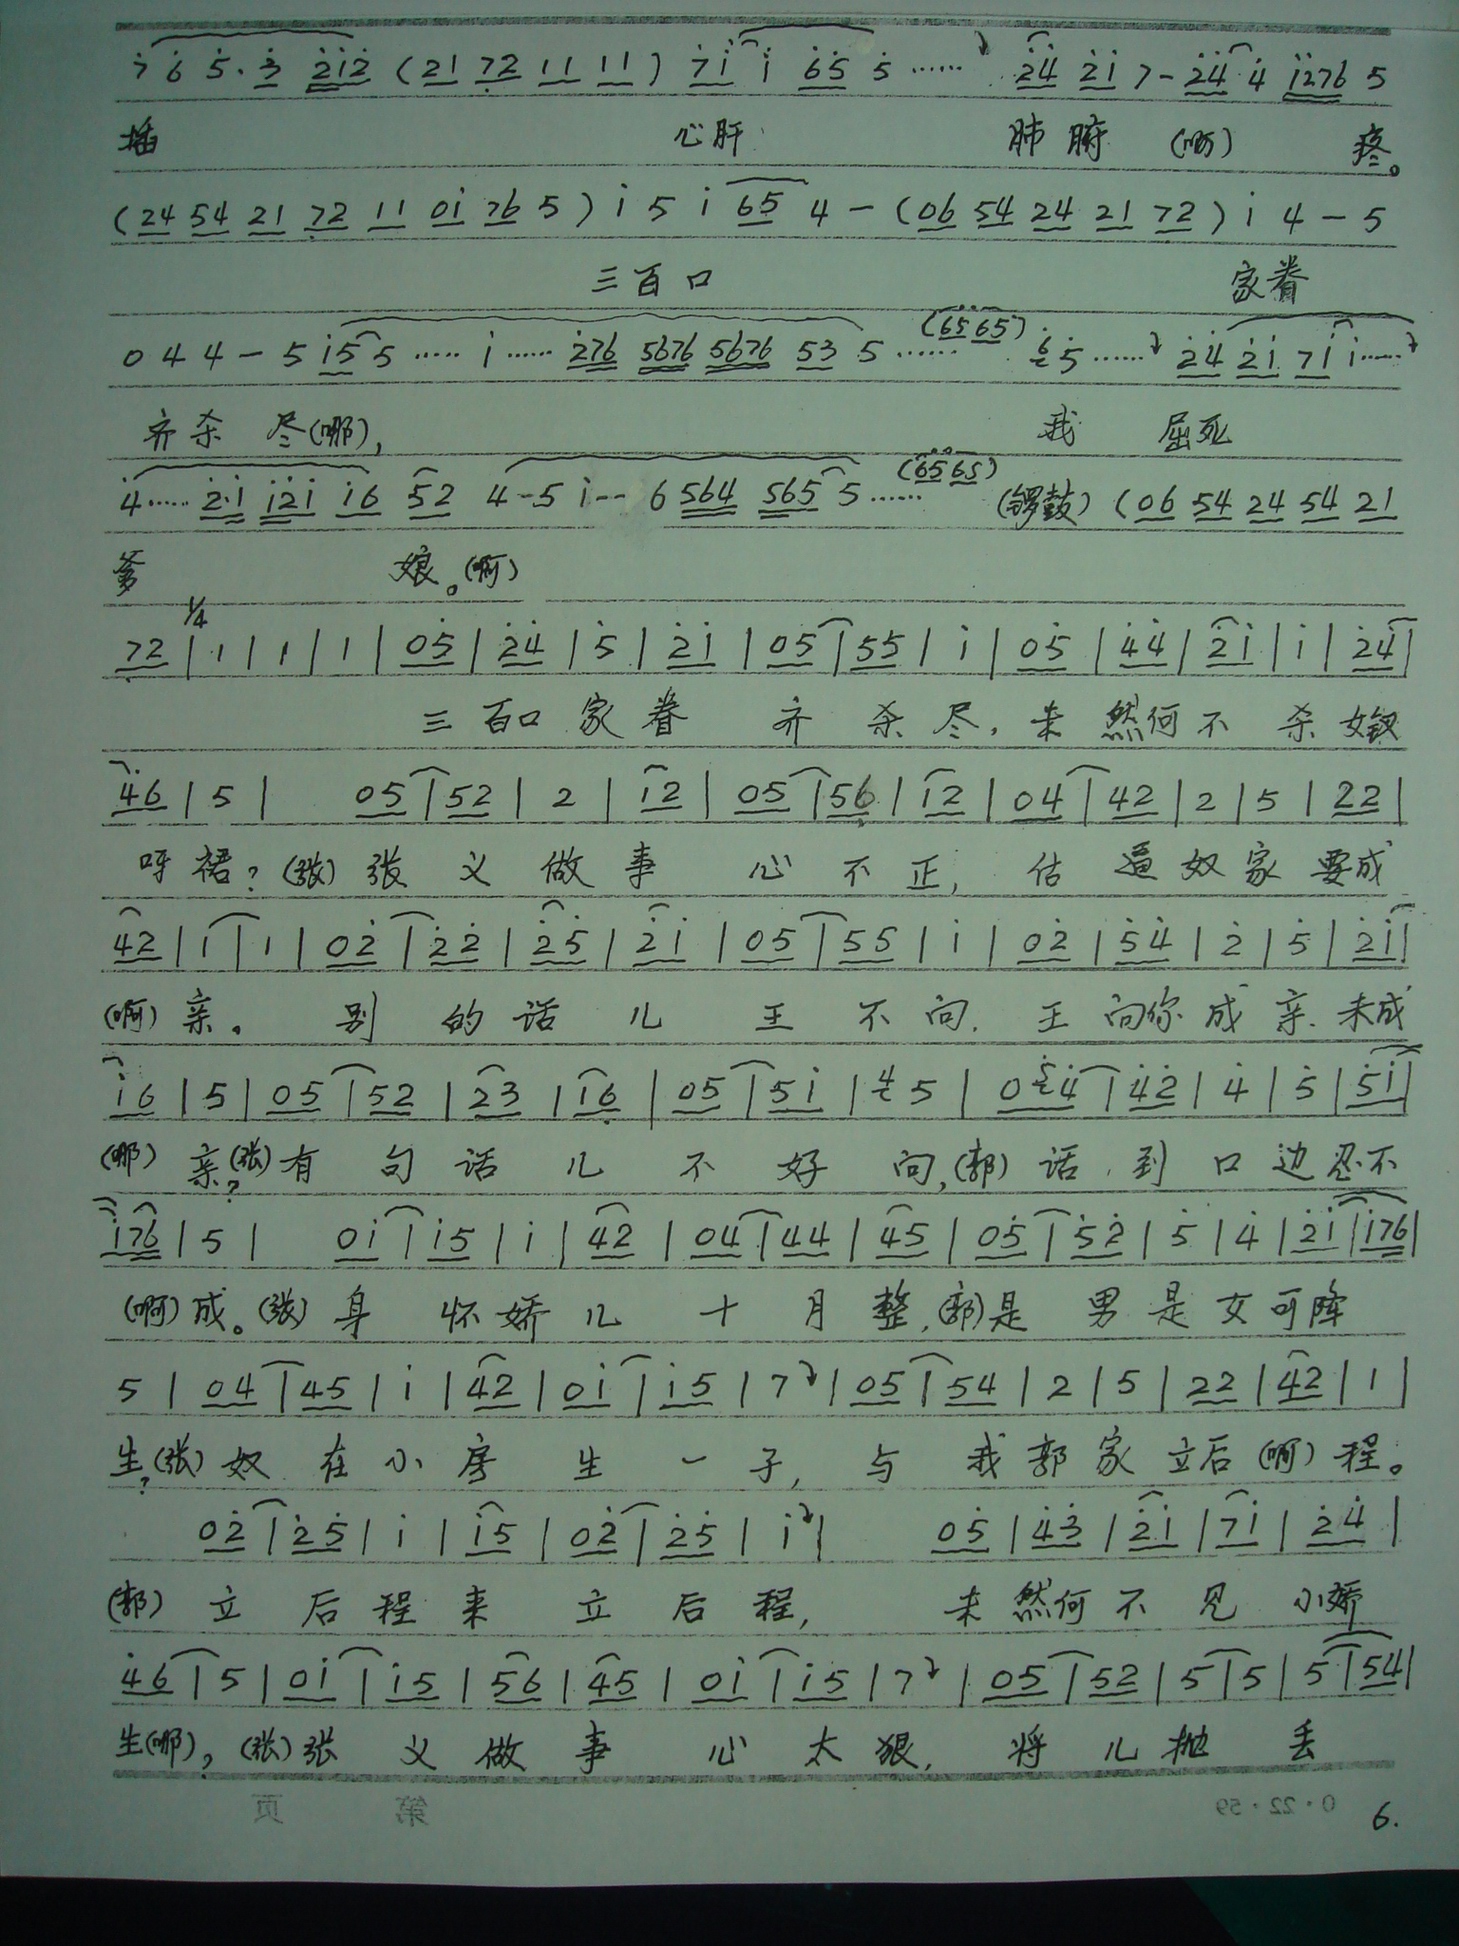 7 6 5·3 212 (21 72 11 11) 71 1 65 5 …… 24 21 7 - 24 4 1276 5
插 心肝 肺腑 (啊) 疼。
(24 54 21 72 11 01 76 5) 1 5 1 65 4 - (06 54 24 21 72) 1 4 - 5
三百口 家眷
0 4 4 - 5 15 5 …… 1 …… 276 5676 5676 53 5 …… (65 65) 6 5 …… 24 21 71 1 ……
齐杀 尽(哪), 我 屈死
4 …… 2·1 121 16 52 4 - 5 1 - - 6 564 565 5 …… (65 65) (锣鼓) (06 54 24 54 21
爹 娘。(啊)
1/4
72 | 1 | 1 | 1 | 05 | 24 | 5 | 21 | 05 | 55 | 1 | 05 | 44 | 21 | 1 | 24 |
三 百口 家 眷 齐 杀 尽, 未 然何 不 杀 女钗
46 | 5 | 05 | 52 | 2 | 12 | 05 | 56 | 12 | 04 | 42 | 2 | 5 | 22 |
呀 裙? (张) 张 义 做 事 心 不 正, 估 逼 奴 家 要成
42 | 1 | 1 | 02 | 22 | 25 | 21 | 05 | 55 | 1 | 02 | 54 | 2 | 5 | 21 |
(啊) 亲。 别 的 话 儿 王 不 问, 王 问你 成 亲 未成
16 | 5 | 05 | 52 | 23 | 16 | 05 | 51 | 4 5 | 0 5 4 | 42 | 4 | 5 | 51 |
(哪) 亲?(张) 有 句 话 儿 不 好 问,(郭) 话 到 口 边 忍不
176 | 5 | 01 | 15 | 1 | 42 | 04 | 44 | 45 | 05 | 52 | 5 | 4 | 21 | 176 |
(啊) 成。(张) 身 怀 娇 儿 十 月 整,(郭) 是 男 是 女 可降
5 | 04 | 45 | 1 | 42 | 01 | 15 | 7 | 05 | 54 | 2 | 5 | 22 | 42 | 1 |
生?(张) 奴 在 小 房 生 一 子, 与 我 郭 家 立后 (啊) 程。
02 | 25 | 1 | 15 | 02 | 25 | 1 | 05 | 43 | 21 | 71 | 24 |
(郭) 立 后 程 来 立 后 程, 未 然何 不 见 小娇
46 | 5 | 01 | 15 | 56 | 45 | 01 | 15 | 7 | 05 | 52 | 5 | 5 | 5 | 54 |
生(哪)? (张) 张 义 做 事 心 太 狠, 将 儿 抛 丢
第 页 0·22·59
6.